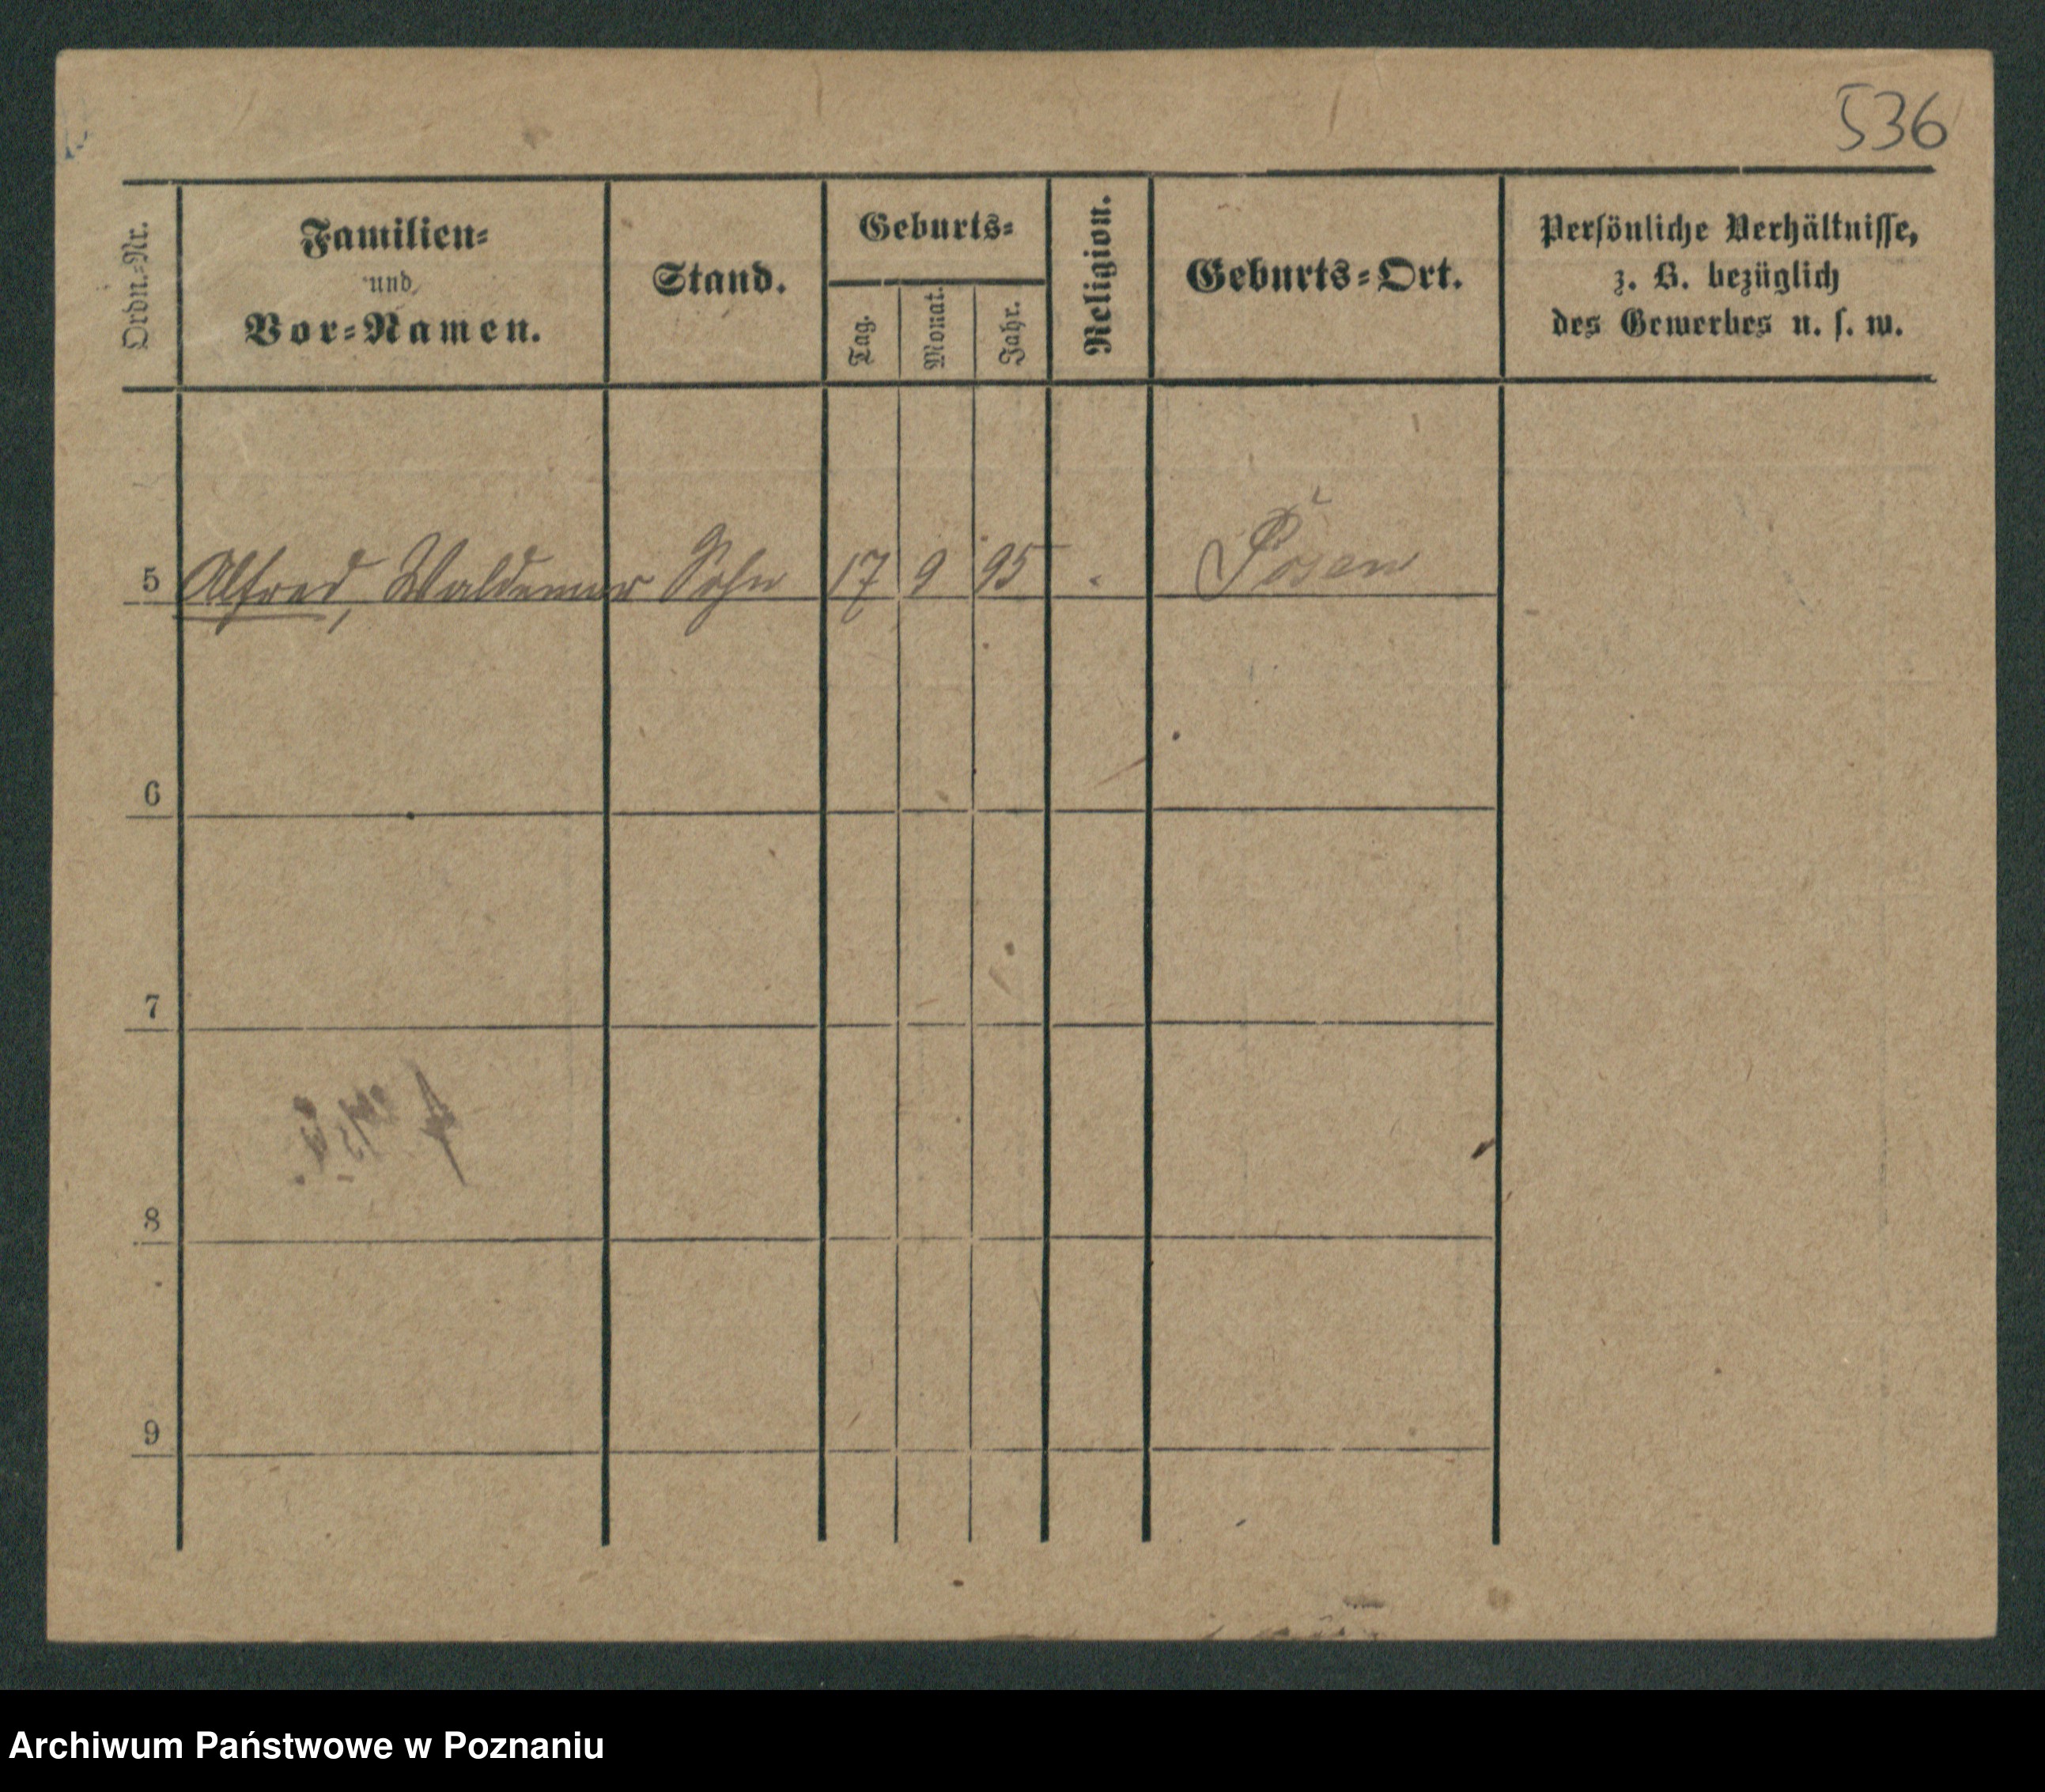 536
Ordn.-Nr.
Familien-
und
Vor-Namen.
Stand.
Geburts-
Tag.
Monat.
Jahr.
Religion.
Geburts-Ort.
Persönliche Verhältnisse,
z. B. bezüglich
des Gewerbes u. s. w.
5 Alfred, Waldemar Sohn 17 9 95 Posen
6
7
8
9
Archiwum Państwowe w Poznaniu